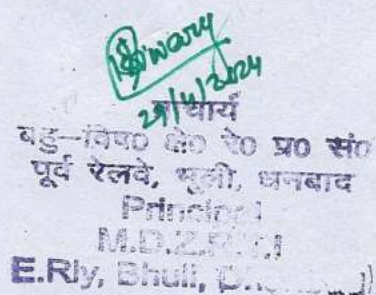 29/4/2024
प्राचार्य
बहु-विष0 क्षे0 रे0 प्र0 सं0
पूर्व रेलवे, भुली, धनबाद
Principal
M.D.Z.R.T.I
E.Rly, Bhuli,